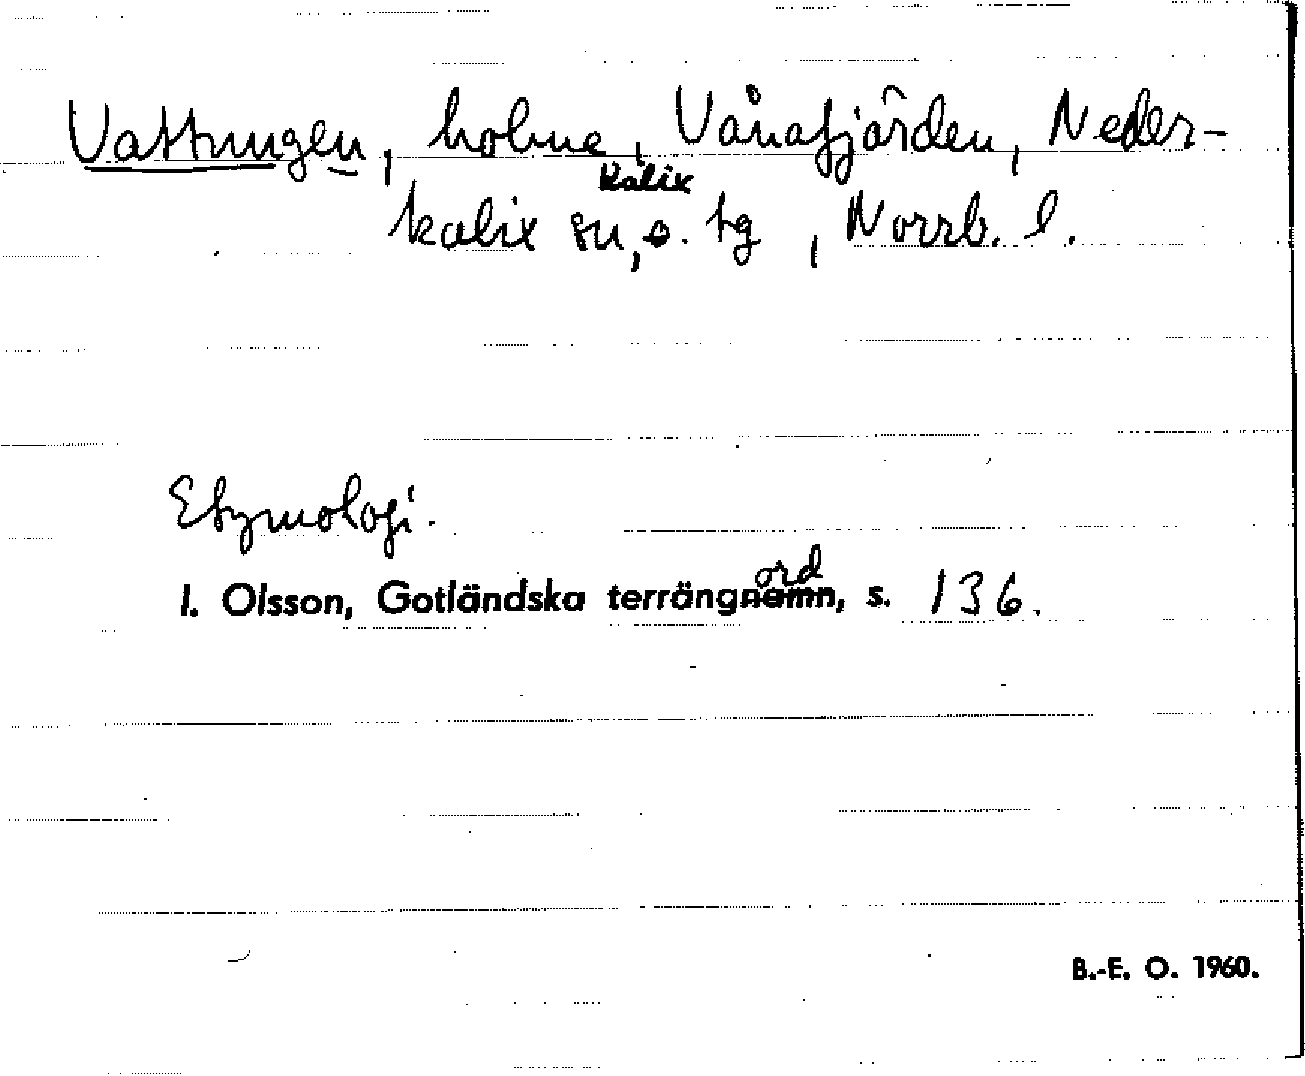 Vattungen, holme, Vånafjärden, Neder-
Kalix
kalix sn, o. tg , Norrb. l.
Etymologi.
ord
I. Olsson, Gotländska terrängnamn, s. 136.
B.-E. O. 1960.